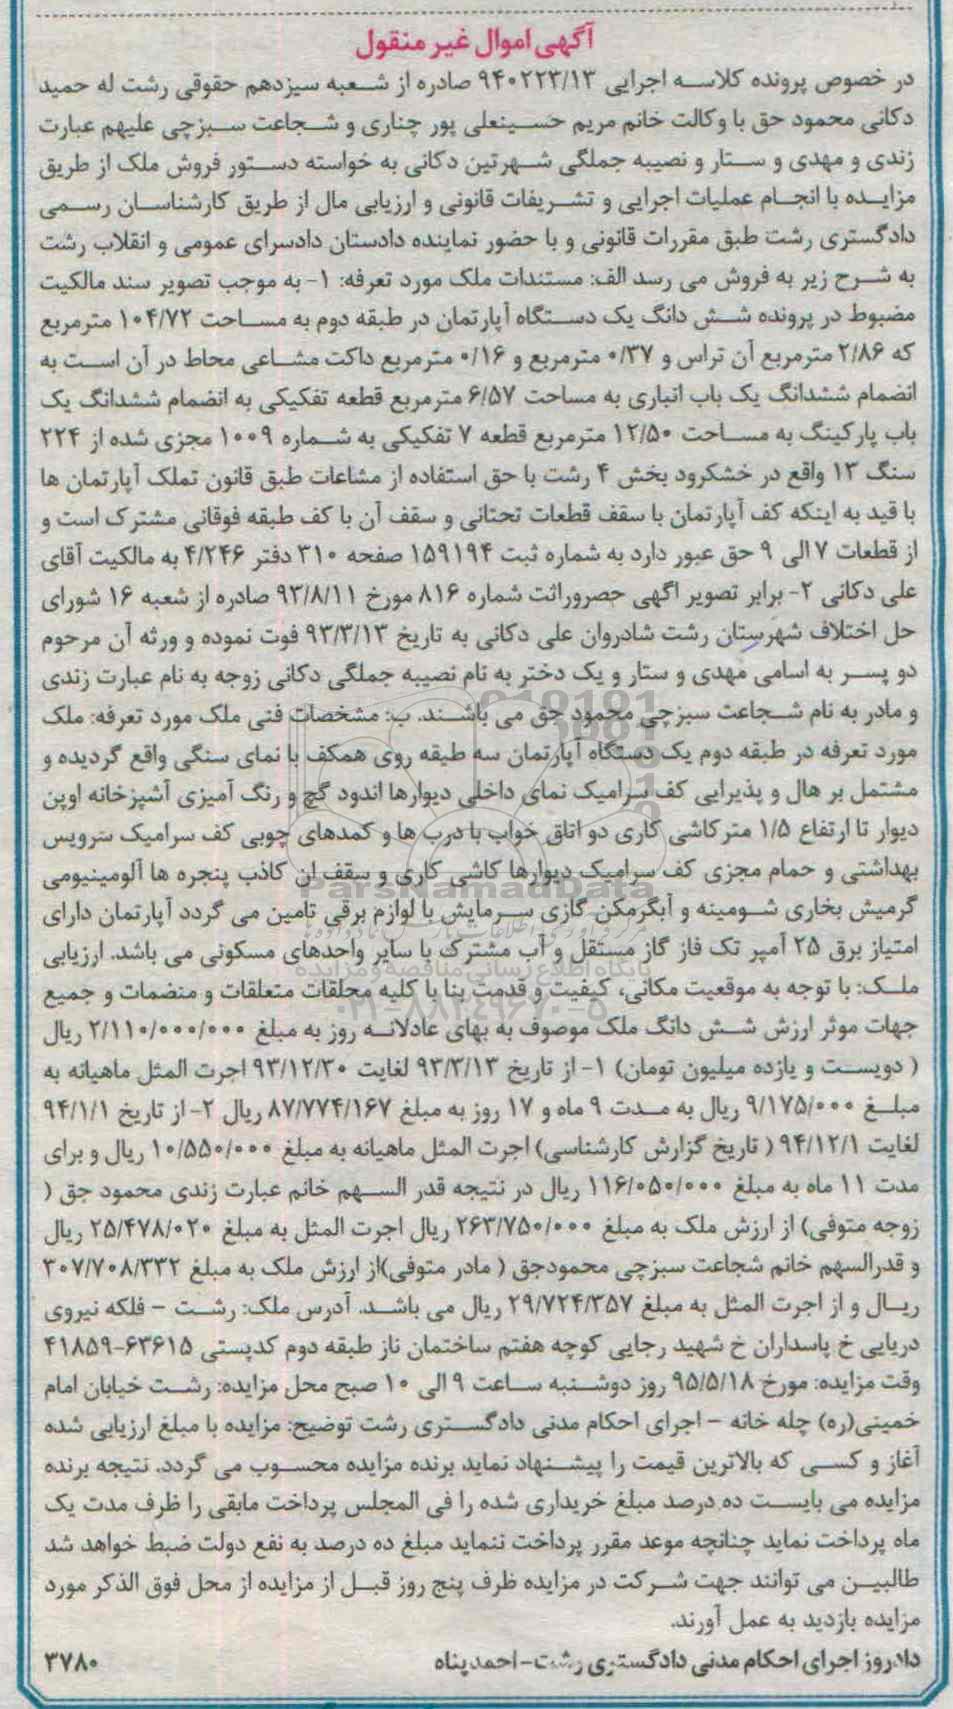 آگهی اموال غیر منقول
در خصوص پرونده کلاسه اجرایی ۹۴۰۲۲۳/۱۳ صادره از شعبه سیزدهم حقوقی رشت له حمید
دکانی محمود حق با وکالت خانم مریم حسینعلی پور چناری و شجاعت سبزچی علیهم عبارت
زندی و مهدی و ستار و نصیبه جملگی شهرتین دکانی به خواسته دستور فروش ملک از طریق
مزایده با انجام عملیات اجرایی و تشریفات قانونی و ارزیابی مال از طریق کارشناسان رسمی
دادگستری رشت طبق مقررات قانونی و با حضور نماینده دادستان دادسرای عمومی و انقلاب رشت
به شرح زیر به فروش می رسد الف: مستندات ملک مورد تعرفه: ۱- به موجب تصویر سند مالکیت
مضبوط در پرونده شش دانگ یک دستگاه آپارتمان در طبقه دوم به مساحت ۱۰۴/۷۲ مترمربع
که ۲/۸۶ مترمربع آن تراس و ۰/۳۷ مترمربع و ۰/۱۶ مترمربع داکت مشاعی محاط در آن است به
انضمام ششدانگ یک باب انباری به مساحت ۶/۵۷ مترمربع قطعه تفکیکی به انضمام ششدانگ یک
باب پارکینگ به مساحت ۱۲/۵۰ مترمربع قطعه ۷ تفکیکی به شماره ۱۰۰۹ مجزی شده از ۲۲۴
سنگ ۱۳ واقع در خشکرود بخش ۴ رشت با حق استفاده از مشاعات طبق قانون تملک آپارتمان ها
با قید به اینکه کف آپارتمان با سقف قطعات تحتانی و سقف آن با کف طبقه فوقانی مشترک است و
از قطعات ۷ الی ۹ حق عبور دارد به شماره ثبت ۱۵۹۱۹۴ صفحه ۳۱۰ دفتر ۴/۲۴۶ به مالکیت آقای
علی دکانی ۲- برابر تصویر اگهی حصروراثت شماره ۸۱۶ مورخ ۹۳/۸/۱۱ صادره از شعبه ۱۶ شورای
حل اختلاف شهرستان رشت شادروان علی دکانی به تاریخ ۹۳/۳/۱۳ فوت نموده و ورثه آن مرحوم
دو پسر به اسامی مهدی و ستار و یک دختر به نام نصیبه جملگی دکانی زوجه به نام عبارت زندی
و مادر به نام شجاعت سبزچی محمود جق می باشند. ب: مشخصات فنی ملک مورد تعرفه: ملک
مورد تعرفه در طبقه دوم یک دستگاه آپارتمان سه طبقه روی همکف با نمای سنگی واقع گردیده و
مشتمل بر هال و پذیرایی کف سرامیک نمای داخلی دیوارها اندود گچ و رنگ آمیزی آشپزخانه اوپن
دیوار تا ارتفاع ۱/۵ متر کاشی کاری دو اتاق خواب با درب ها و کمدهای چوبی کف سرامیک سرویس
بهداشتی و حمام مجزی کف سرامیک دیوارها کاشی کاری و سقف ان کاذب پنجره ها آلومینیومی
گرمیش بخاری شومینه و آبگرمکن گازی سرمایش با لوازم برقی تامین می گردد آپارتمان دارای
امتیاز برق ۲۵ آمپر تک فاز گاز مستقل و آب مشترک با سایر واحدهای مسکونی می باشد. ارزیابی
ملک: با توجه به موقعیت مکانی، کیفیت و قدمت بنا با کلیه محلقات متعلقات و منضمات و جمیع
جهات موثر ارزش شش دانگ ملک موصوف به بهای عادلانه روز به مبلغ ۲/۱۱۰/۰۰۰/۰۰۰ ریال
( دویست و یازده میلیون تومان) ۱- از تاریخ ۹۳/۳/۱۳ لغایت ۹۳/۱۲/۳۰ اجرت المثل ماهیانه به
مبلغ ۹/۱۷۵/۰۰۰ ریال به مدت ۹ ماه و ۱۷ روز به مبلغ ۸۷/۷۷۴/۱۶۷ ریال ۲- از تاریخ ۹۴/۱/۱
لغایت ۹۴/۱۲/۱ ( تاریخ گزارش کارشناسی) اجرت المثل ماهیانه به مبلغ ۱۰/۵۵۰/۰۰۰ ریال و برای
مدت ۱۱ ماه به مبلغ ۱۱۶/۰۵۰/۰۰۰ ریال در نتیجه قدر السهم خانم عبارت زندی محمود جق (
زوجه متوفی) از ارزش ملک به مبلغ ۲۶۳/۷۵۰/۰۰۰ ریال اجرت المثل به مبلغ ۲۵/۴۷۸/۰۲۰ ریال
و قدرالسهم خانم شجاعت سبزچی محمودجق ( مادر متوفی)از ارزش ملک به مبلغ ۳۰۷/۷۰۸/۳۳۲
ریال و از اجرت المثل به مبلغ ۲۹/۷۲۴/۳۵۷ ریال می باشد. آدرس ملک: رشت - فلکه نیروی
دریایی خ پاسداران خ شهید رجایی کوچه هفتم ساختمان ناز طبقه دوم کدپستی ۶۳۶۱۵-۴۱۸۵۹
وقت مزایده: مورخ ۹۵/۵/۱۸ روز دوشنبه ساعت ۹ الی ۱۰ صبح محل مزایده: رشت خیابان امام
خمینی(ره) چله خانه - اجرای احکام مدنی دادگستری رشت توضیح: مزایده با مبلغ ارزیابی شده
آغاز و کسی که بالاترین قیمت را پیشنهاد نماید برنده مزایده محسوب می گردد. نتیجه برنده
مزایده می بایست ده درصد مبلغ خریداری شده را فی المجلس پرداخت مابقی را ظرف مدت یک
ماه پرداخت نماید چنانچه موعد مقرر پرداخت ننماید مبلغ ده درصد به نفع دولت ضبط خواهد شد
طالبین می توانند جهت شرکت در مزایده ظرف پنج روز قبل از مزایده از محل فوق الذکر مورد
مزایده بازدید به عمل آورند.
دادروز اجرای احکام مدنی دادگستری رشت-احمدپناه
۳۷۸۰
ParsNamadData
پایگاه اطلاع رسانی مناقصه و مزایده
۰۲۱-۸۸۳۴۹۶۷۰-۵